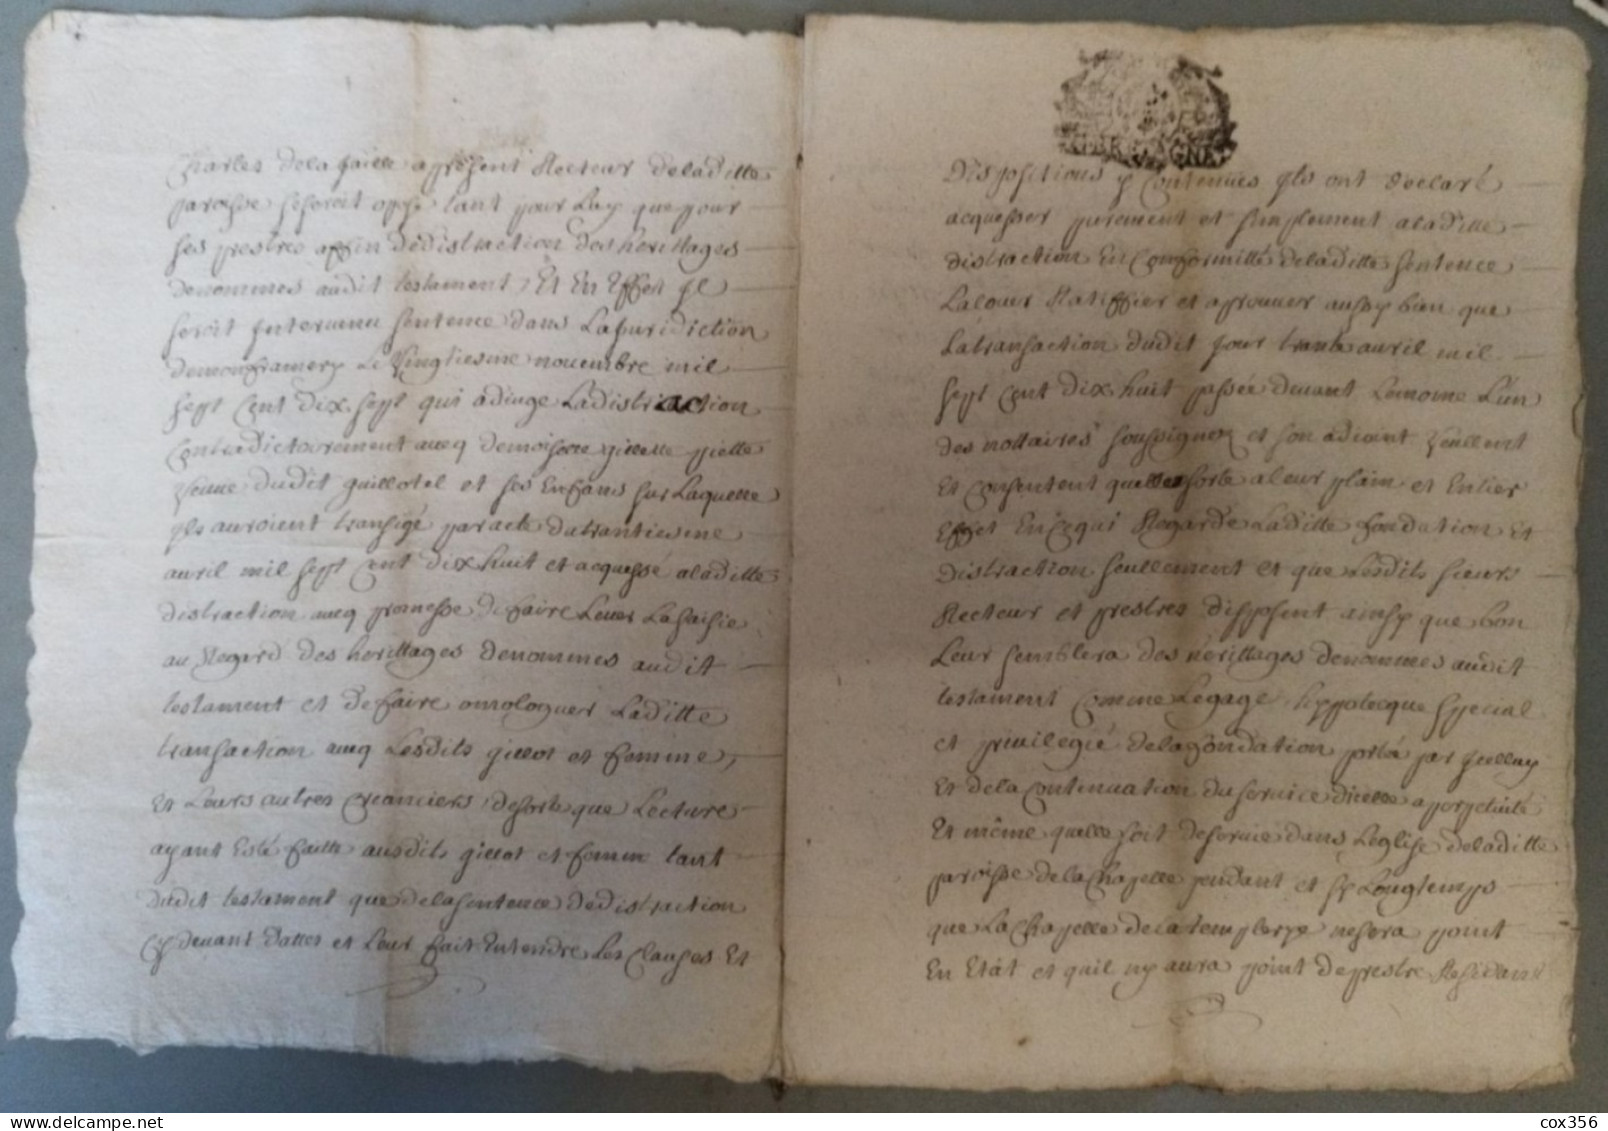 Charles delafaille apresent Recteur deladitte
paroisse seseroit opose tant pour Luy que pour
ses prestres affin dedistraction des herittages
denommes audit testament, Et En Effet il
seroit Intervenu sentence dans Lajuridiction
demonframery Le Vingtiesme novembre mil
sept Cent dix sept qui adiuge Ladistraction
Contradictoirement aveq demoiselle gillette piette
Veuve dudit guillotel et ses Enfans sur Laquelle
ils auroient transigé par acte dutrantiesme
avril mil sept Cent dix huit et acquessé aladitte
distraction aveq promesse de faire Lever Lasaisie
au Regard des herittages denommes audit
testament et defaire omologuer Laditte
transaction aveq Lesdits gillot et femme,
Et Leurs autres Creanciers, desorte que Lecture
ayant Esté faitte ausdits gillot et femme tant
dudit testament que delasentence dedistraction
Cy devant dattes et Leur fait Entendre Les Clauses Et
GDEBRETAGNE
Dispositions y Contenües ils ont declaré
acquesser purement et simplement aladitte
distraction En Conformitté deladitte sentence
Lalouer Ratiffier et aprouver aussy bien que
Latransaction dudit jour trante avril mil
sept Cent dix huit passée devant Lemoine L'un
des nottaires soussignez et son adjoint Veullent
Et Consentent quelle sorte aleur plain et Entier
Effet En Cequi Regarde Laditte fondation Et
distraction seullement et que Lesdits sieurs
Recteur et prestres disposent ainsy que bon
Leur semblera des hérittages denommes audit
testament Comme Legage hippotecque special
et privilegié delafondation portée par Icelluy
Et dela Continuation duservice dicelle aperpetuité
Et même quelle soit deservie dans L'eglise deladitte
paroisse delaChapelle pendant et sy Longtemps
que LaChapelle delatemplerye nesera point
En Etat et quil ny aura point deprestre Residant
cox356